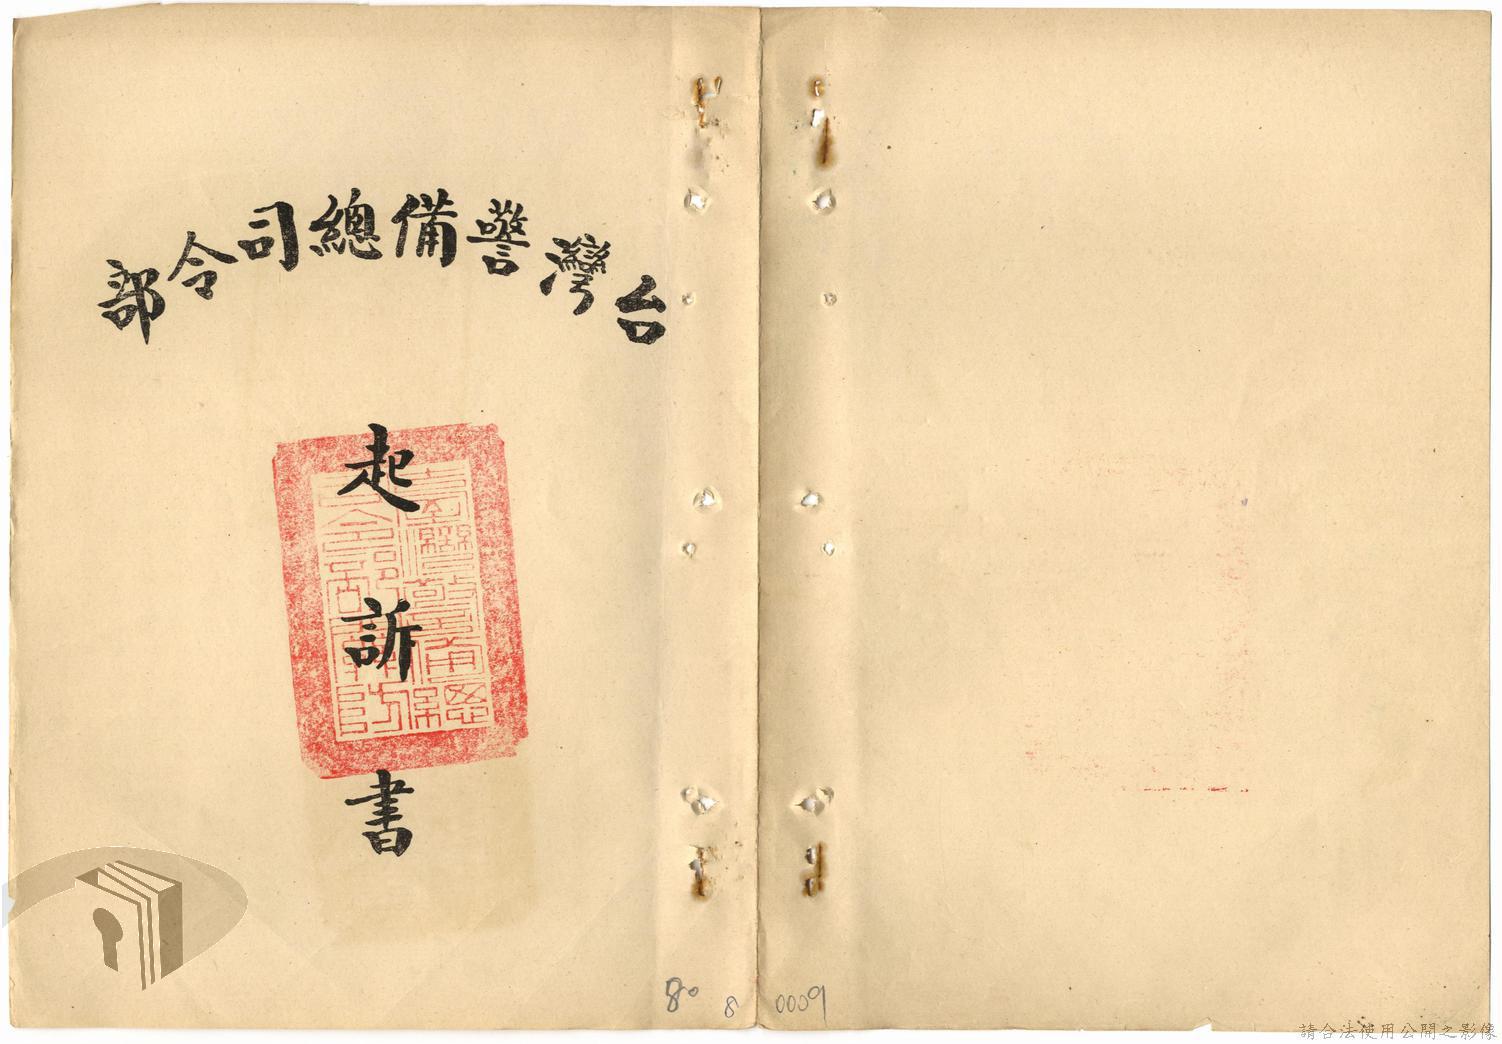 台灣警備總司令部
起訴書
臺灣警備總
司令部軍事
80
8
0009
請合法使用公開之影像